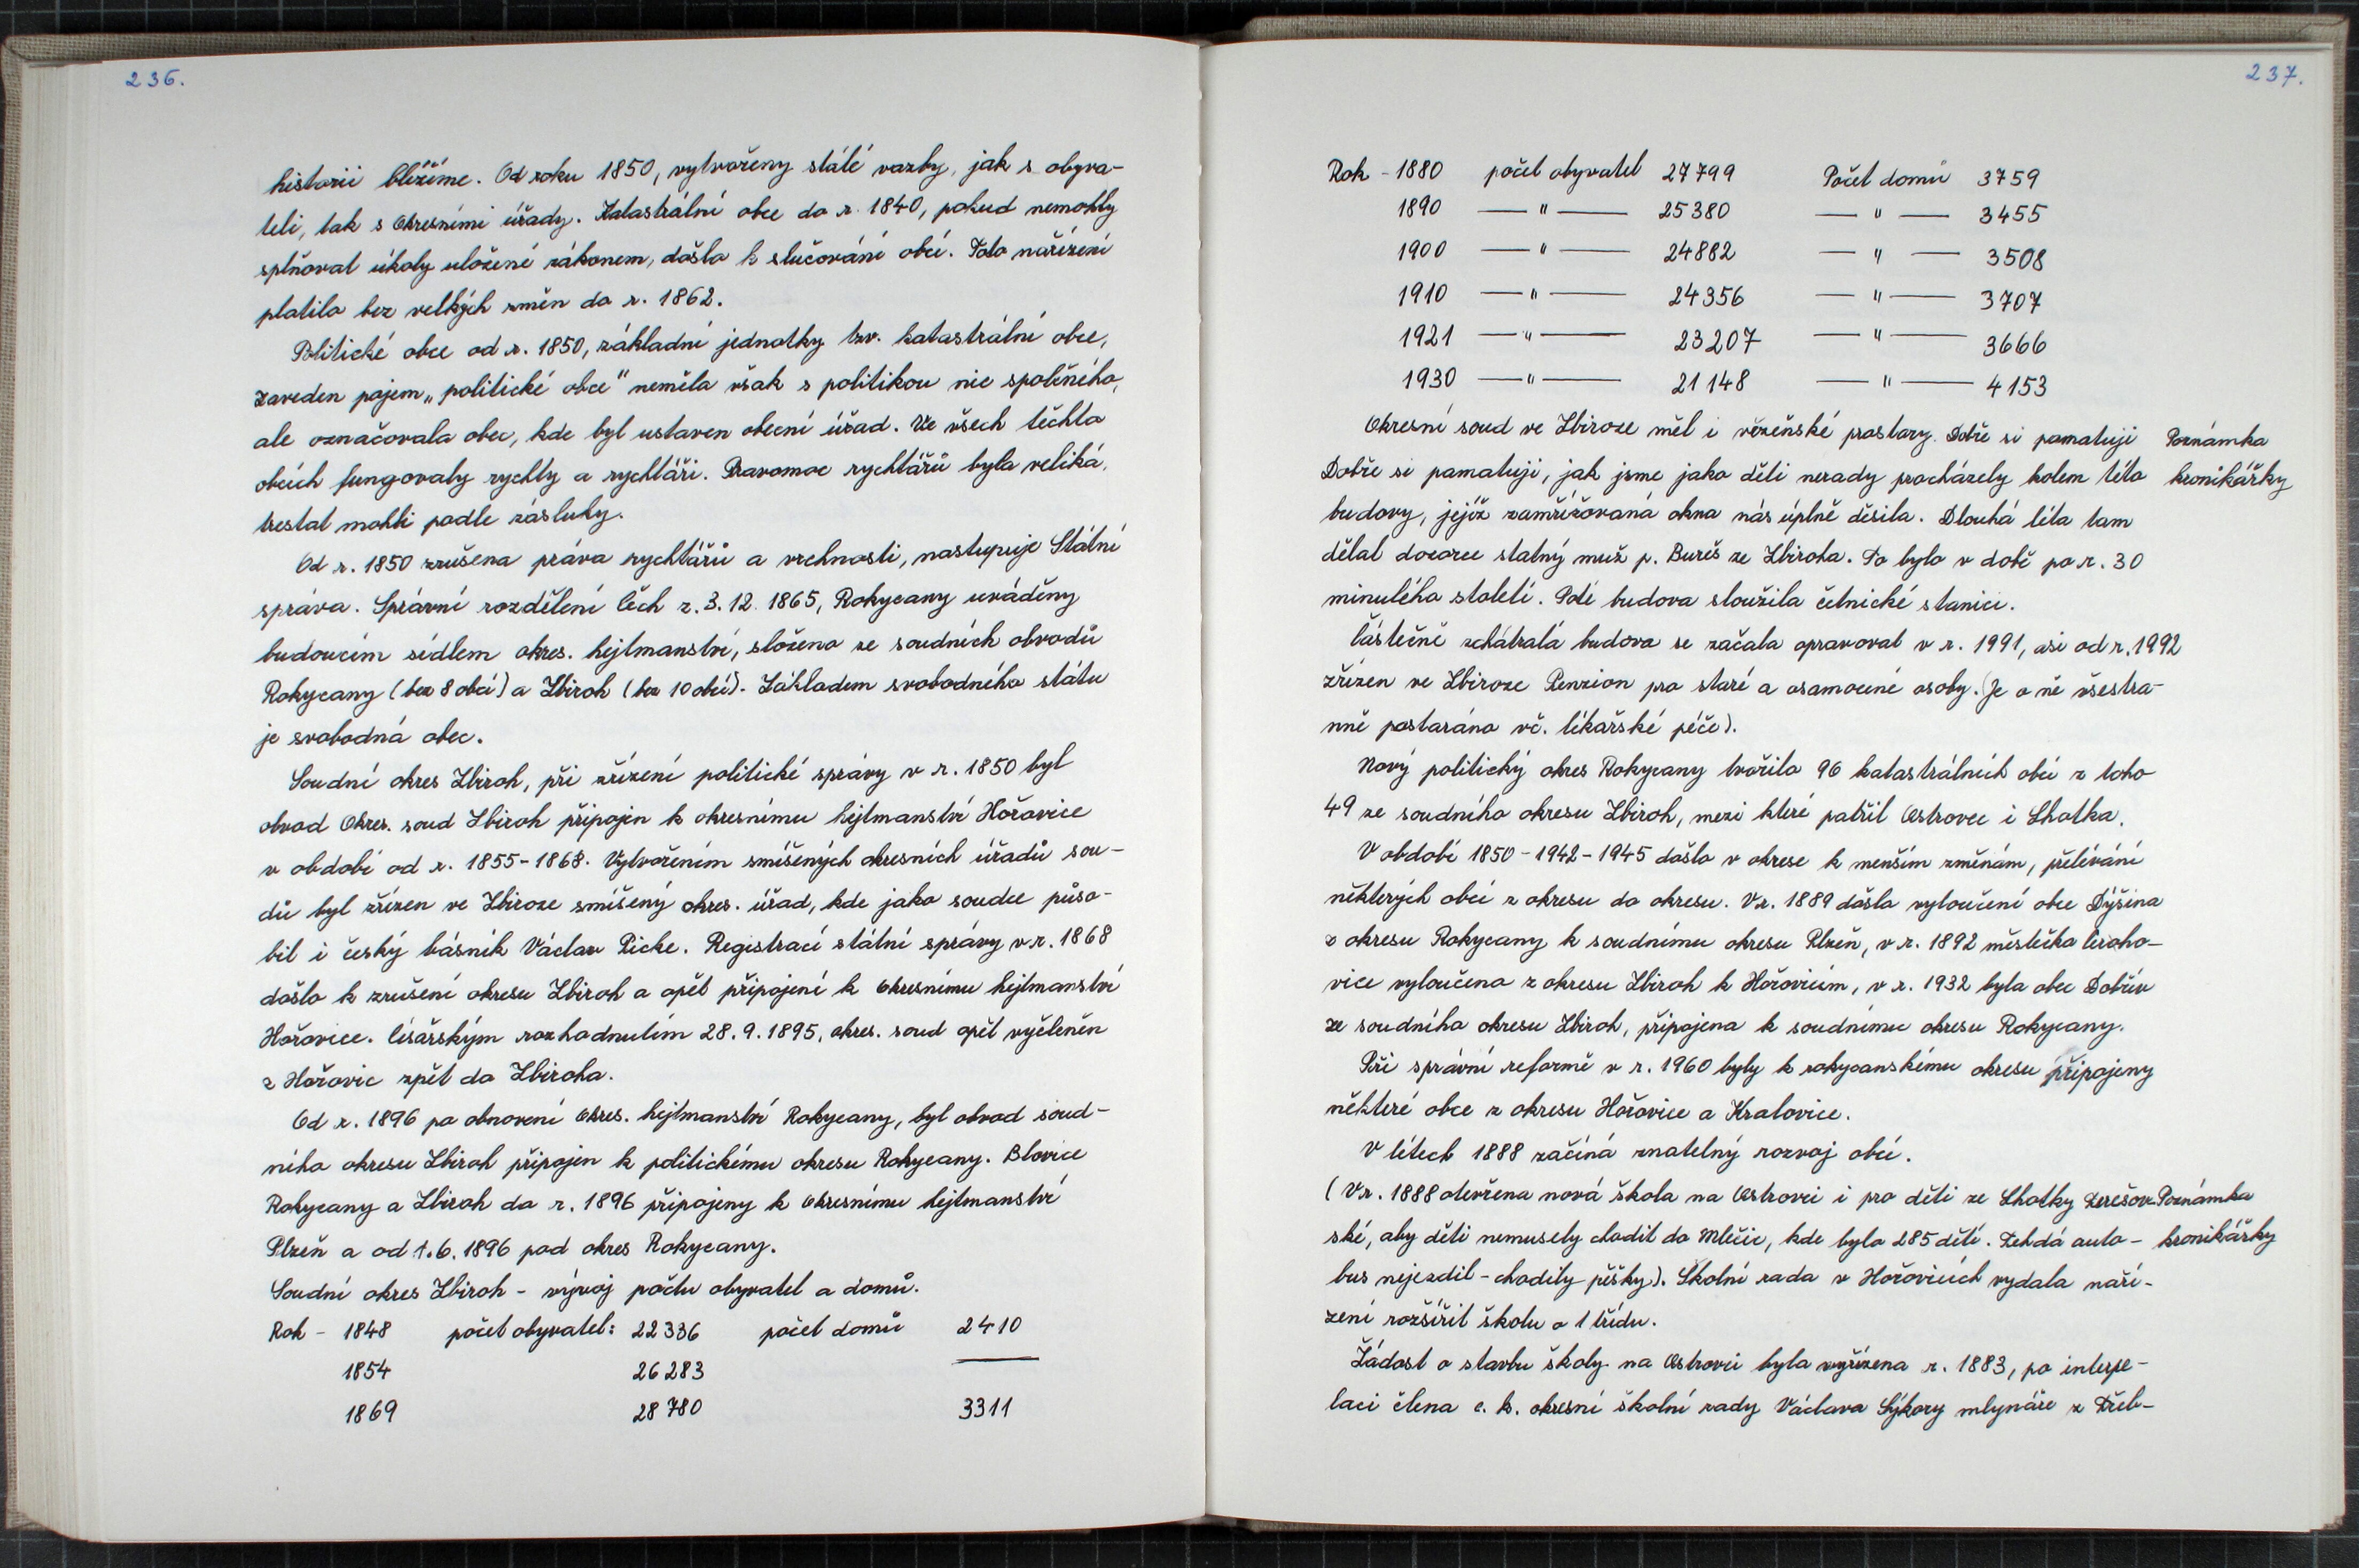 236.
historii blížíme. Od roku 1850, vytvořeny stálé vazby, jak s obyva-
teli, tak s Okresními úřady. Katastrální obce do r. 1840, pokud nemohly
splňovat úkoly uložené zákonem, došlo k slučování obcí. Toto nařízení
platilo bez velkých změn do r. 1862.
Politické obce od r. 1850, základní jednotky tzv. katastrální obce,
zaveden pojem „politické obce" neměla však s politikou nic společného,
ale označovala obec, kde byl ustaven obecní úřad. Ve všech těchto
obcích fungovaly rychty a rychtáři. Pravomoc rychtářů byla veliká,
trestat mohli podle zásluhy.
Od r. 1850 zrušena práva rychtářů a vrchnosti, nastupuje Státní
správa. Správní rozdělení Čech z. 3. 12. 1865, Rokycany uváděny
budoucím sídlem okres. hejtmanství, složeno ze soudních obvodů
Rokycany (bez 8 obcí) a Zbiroh (bez 10 obcí). Základem svobodného státu
je svobodná obec.
Soudní okres Zbiroh, při zřízení politické správy v r. 1850 byl
obvod Okres. soud Zbiroh připojen k okresnímu hejtmanství Hořovice
v období od r. 1855-1868. Vytvořením smíšených okresních úřadů sou-
dů byl zřízen ve Zbiroze smíšený okres. úřad, kde jako soudce půso-
bil i český básník Václav Picke. Registrací státní správy v r. 1868
došlo k zrušení okresu Zbiroh a opět připojení k Okresnímu hejtmanství
Hořovice. Císařským rozhodnutím 28. 9. 1895, okres. soud opět vyčleněn
z Hořovic zpět do Zbiroha.
Od r. 1896 po obnovení Okres. hejtmanství Rokycany, byl obvod soud-
ního okresu Zbiroh připojen k politickému okresu Rokycany. Blovice
Rokycany a Zbiroh do r. 1896 připojeny k Okresnímu hejtmanství
Plzeň a od 1. 6. 1896 pod okres Rokycany.
Soudní okres Zbiroh - vývoj počtu obyvatel a domů.
Rok - 1848 počet obyvatel: 22336 počet domů 2410
1854 26283 ——
1869 28780 3311
237.
Rok - 1880 počet obyvatel 27799 Počet domů 3759
1890 — " — 25380 — " — 3455
1900 — " — 24882 — " — 3508
1910 — " — 24356 — " — 3707
1921 — " — 23207 — " — 3666
1930 — " — 21148 — " — 4153
Okresní soud ve Zbiroze měl i vězeňské prostory. Dobře si pamatuji Poznámka
Dobře si pamatuji, jak jsme jako děti nerady procházely kolem této kronikářky
budovy, jejíž zamřížovaná okna nás úplně děsila. Dlouhá léta tam
dělal dozorce statný muž p. Bureš ze Zbiroha. To bylo v době po r. 30
minulého století. Poté budova sloužila četnické stanici.
Částečně zchátralá budova se začala opravovat v r. 1991, asi od r. 1992
zřízen ve Zbiroze Penzion pro staré a osamocené osoby. (Je o ně všestra-
nně postaráno vč. lékařské péče).
Nový politický okres Rokycany tvořilo 96 katastrálních obcí z toho
49 ze soudního okresu Zbiroh, mezi které patřil Ostrovec i Lhotka.
V období 1850-1942-1945 došlo v okrese k menším změnám, přelévání
některých obcí z okresu do okresu. V r. 1889 došlo vyloučení obce Dýšina
z okresu Rokycany k soudnímu okresu Plzeň, v r. 1892 městečko Ceroho-
vice vyloučeno z okresu Zbiroh k Hořovicím, v r. 1932 byla obec Dobřív
ze soudního okresu Zbiroh, připojena k soudnímu okresu Rokycany.
Při správní reformě v r. 1960 byly k rokycanskému okresu připojeny
některé obce z okresu Hořovice a Kralovice.
V létech 1888 začíná znatelný rozvoj obcí.
(V r. 1888 otevřena nová škola na Ostrovci i pro děti ze Lhotky Terešov- Poznámka
ské, aby děti nemusely chodit do Mlečic, kde bylo 285 dětí. Tehdá auto- kronikářky
bus nejezdil - chodily pěšky). Školní rada v Hořovicích vydala naří-
zení rozšířit školu o 1 třídu.
Žádost o stavbu školy na Ostrovci byla vyřízena r. 1883, po interpe-
laci člena c. k. okresní školní rady Václava Sýkory mlynáře z Třeb-